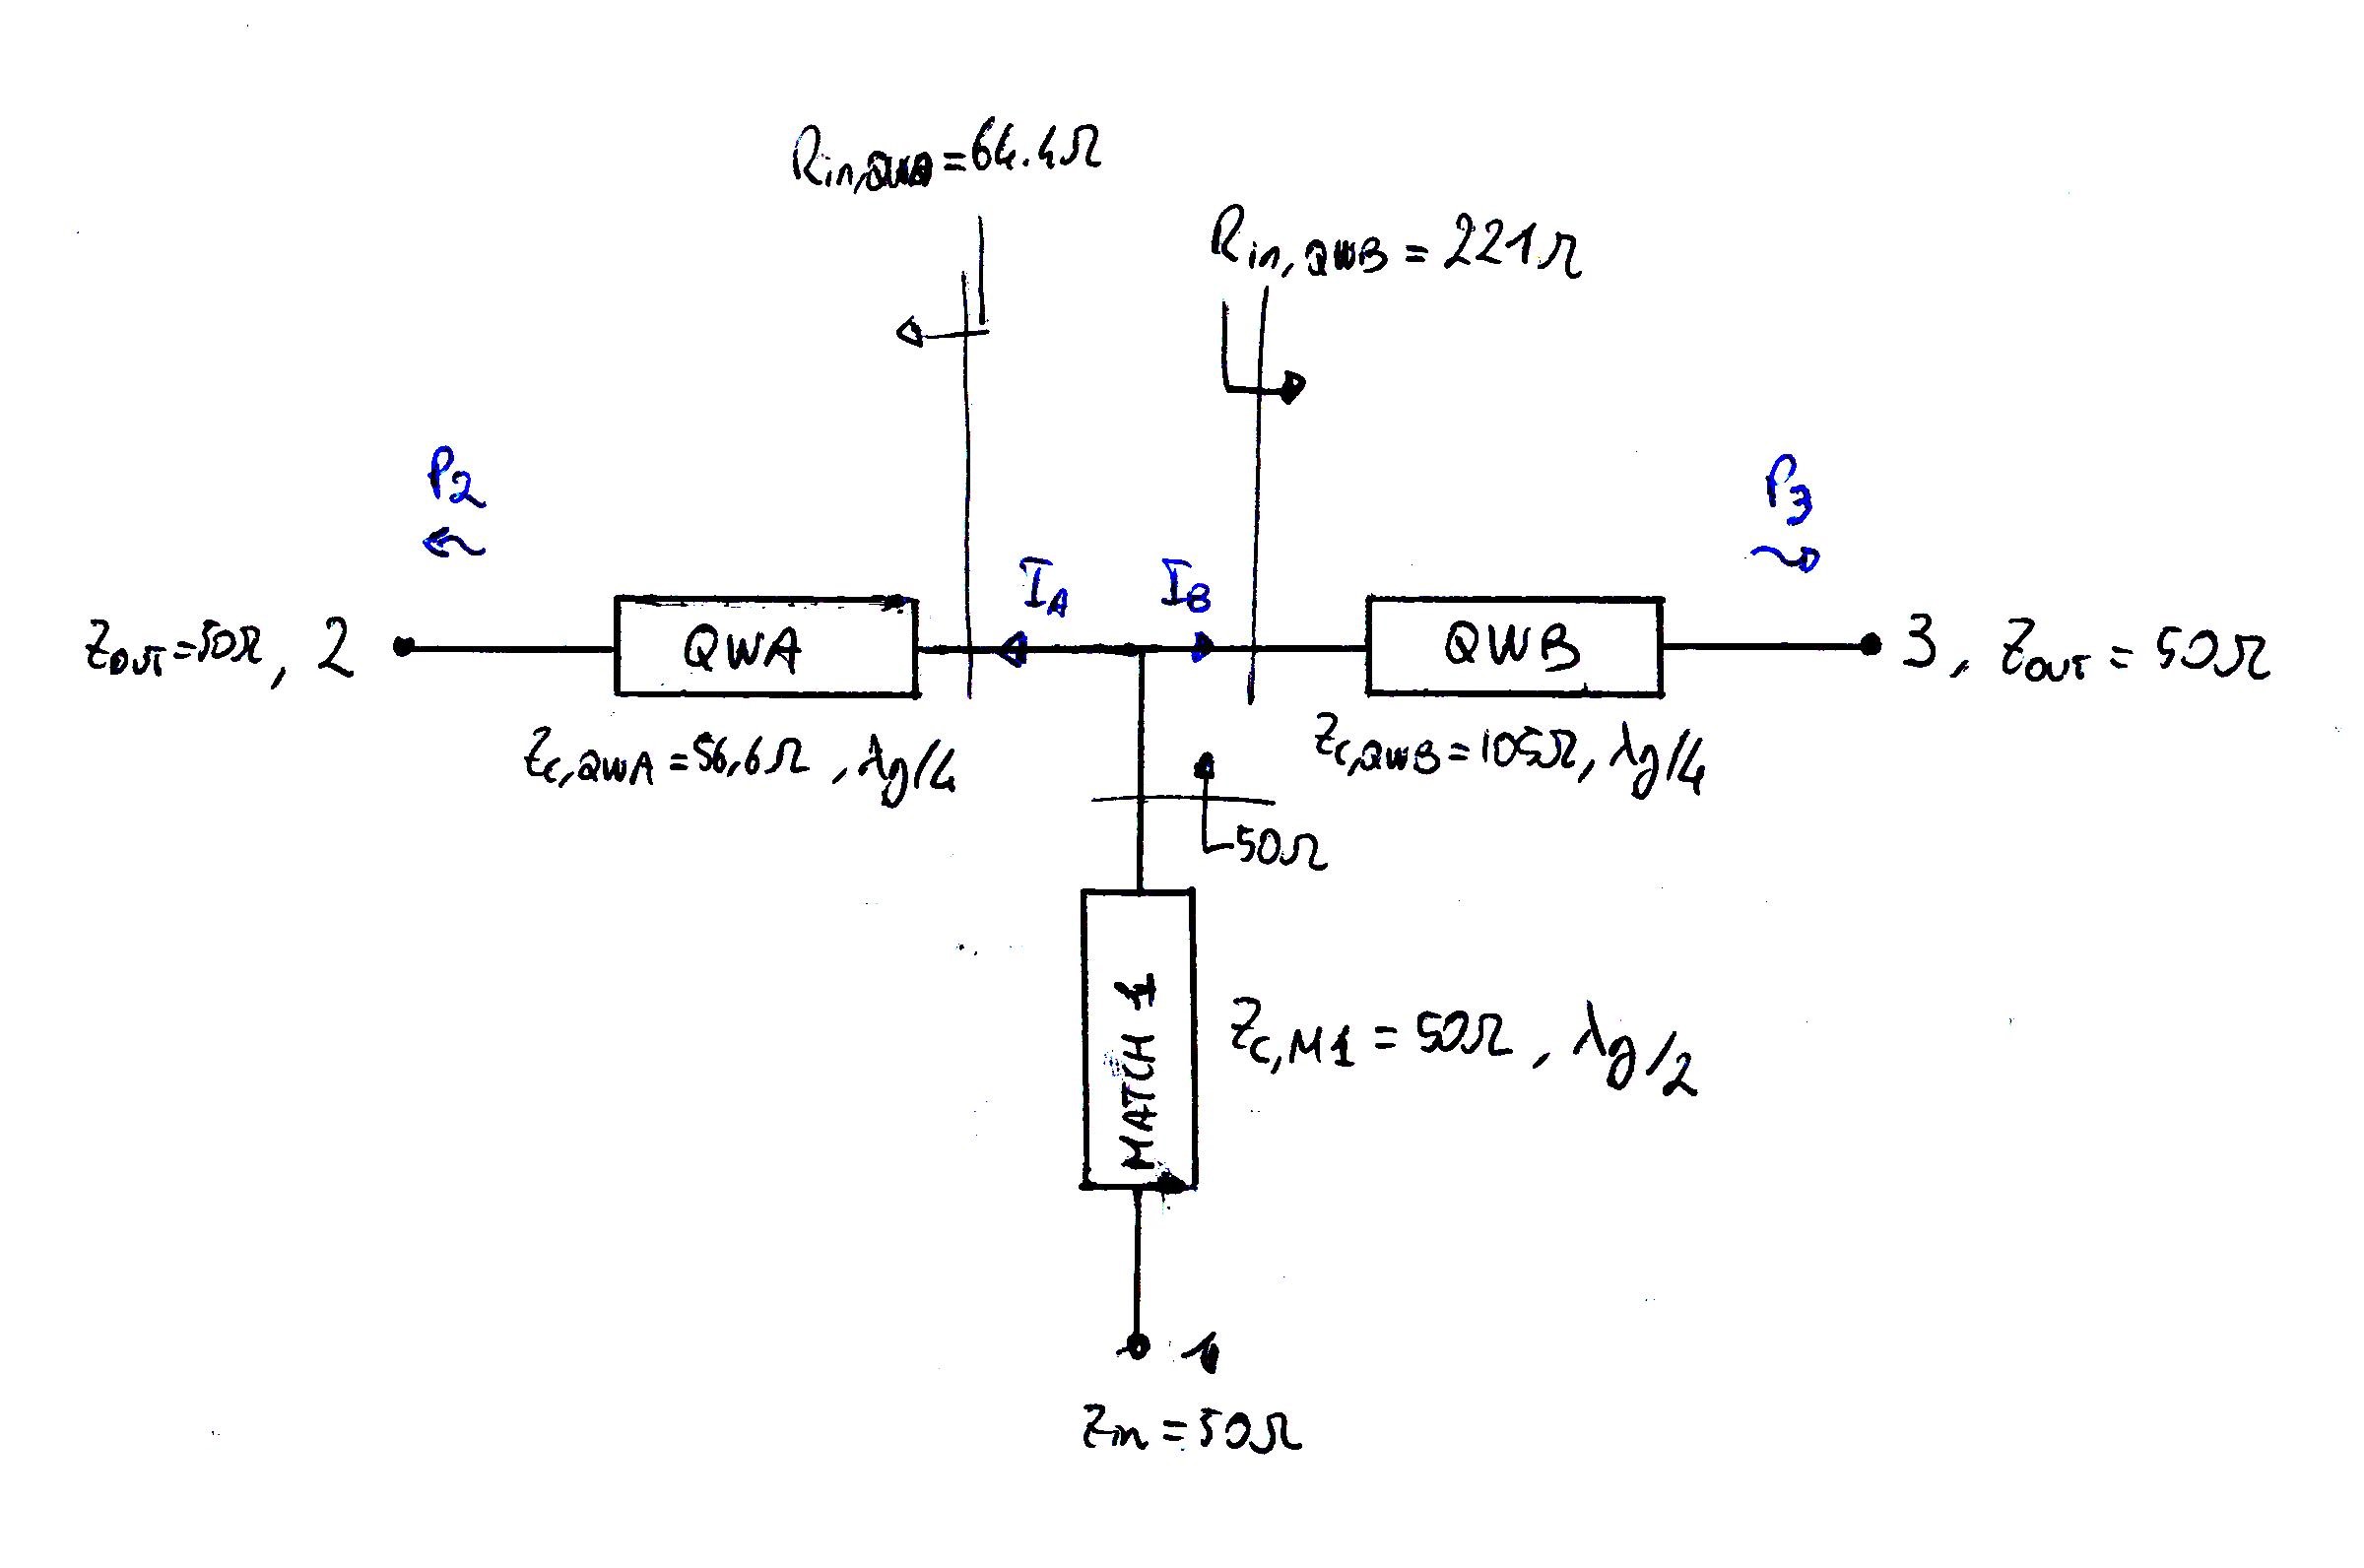 Rin,QWA = 64.4Ω
Rin,QWB = 221Ω
P2
P3
IA
IB
ZOUT = 50Ω, 2
QWA
QWB
3, ZOUT = 50Ω
Zc,QWA = 56,6Ω, λg/4
Zc,QWB = 105Ω, λg/4
50Ω
MATCH 1
Zc,M1 = 50Ω, λg/2
1
Zin = 50Ω